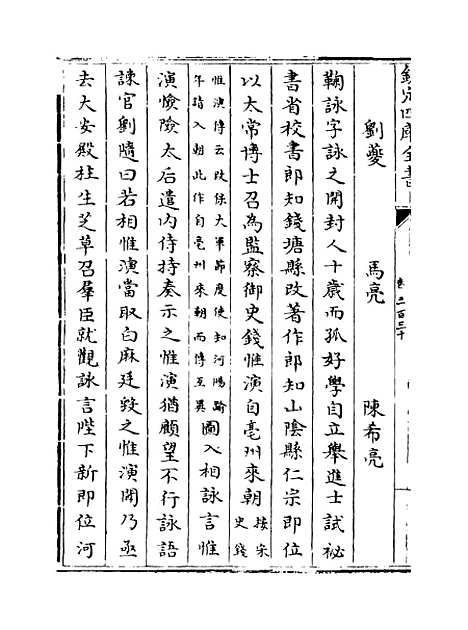 欽定四庫全書
卷三百三十
劉夔 馬亮 陳希亮
鞠詠字詠之開封人十歲而孤好學自立舉進士試祕
書省校書郎知錢塘縣改著作郎知山陰縣仁宗即位
以太常博士召為監察御史錢惟演自亳州來朝按宋史錢
惟演傳云改保大軍節度使知河陽踰年請入朝此作自亳州來朝而傳互異圖入相詠言惟
演憸險太后遣内侍持奏示之惟演猶顧望不行詠語
諫官劉隨曰若相惟演當取白麻廷毀之惟演聞乃亟
去大安殿柱生芝草召羣臣就觀詠言陛下新即位河